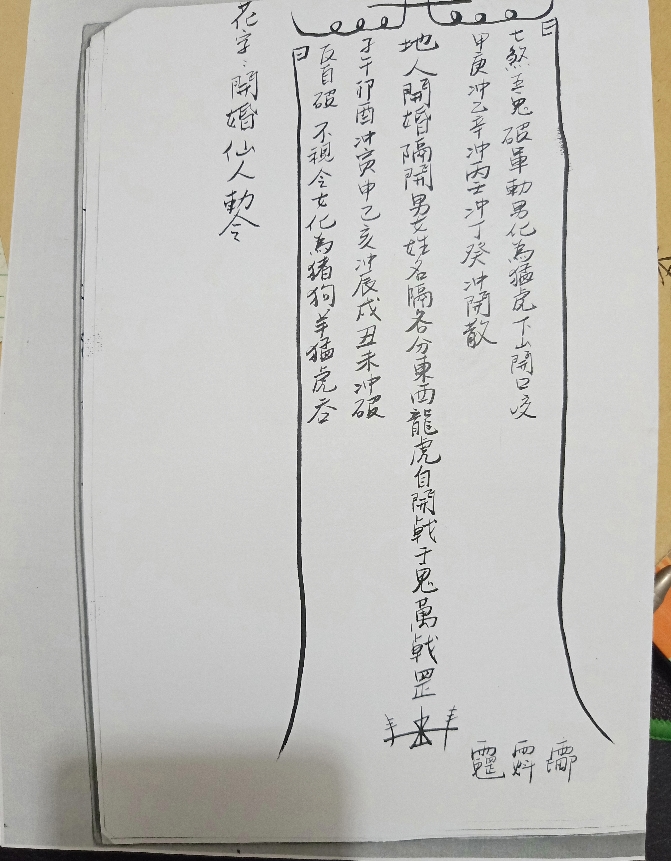 日
七煞五鬼破軍勅男化為猛虎下山開口咬
甲庚冲乙辛冲丙壬冲丁癸冲開散
地人開婚隔開男女姓名隔各分東西龍虎自開戟于鬼萬戟罡
子午卯酉冲寅申乙亥冲辰戌丑未冲破
反目破不視令女化為猪狗羊猛虎吞
日
花字：開婚仙人勅令